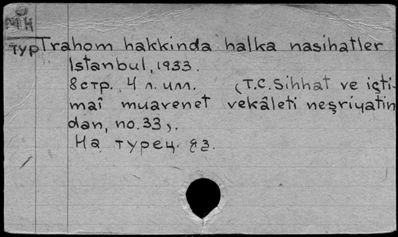 тур Trahom hakkinda halka nasihatler
Istanbul, 1933.
8 стр., 4 л. илл. (T.C. Sihhat ve içti-
maî muavenet vekâleti neşriyatin
dan, no. 33).
На турец. яз.